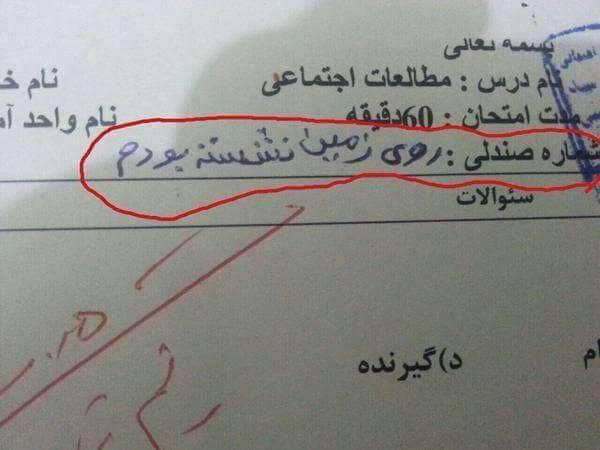 بسمه تعالی
نام درس : مطالعات اجتماعی
نام
مدت امتحان : 60دقیقه
نام واحد
شماره صندلی : روی زمین نشسته بودم
سئوالات
د)گیرنده